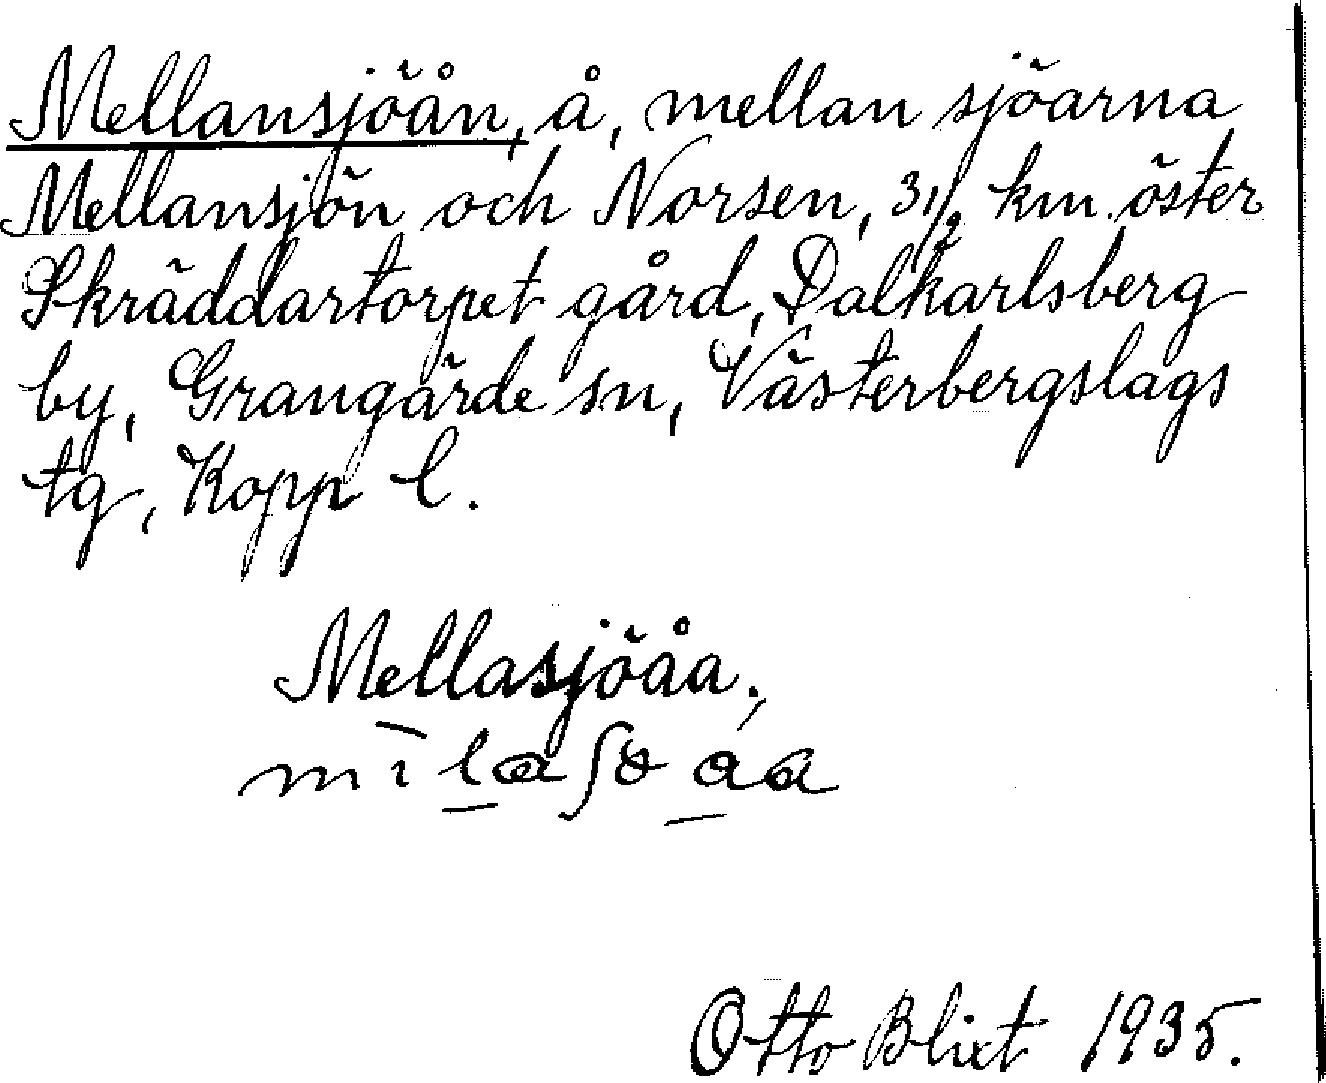 Mellansjöån, å, mellan sjöarna
Mellansjön och Norsen, 3 1/2 km. öster
Skräddartorpet gård, Dalkarlsberg
by, Grangärde sn, Västerbergslags
tg, Kopp l.
Mellasjöåa;
Otto Blixt 1935.